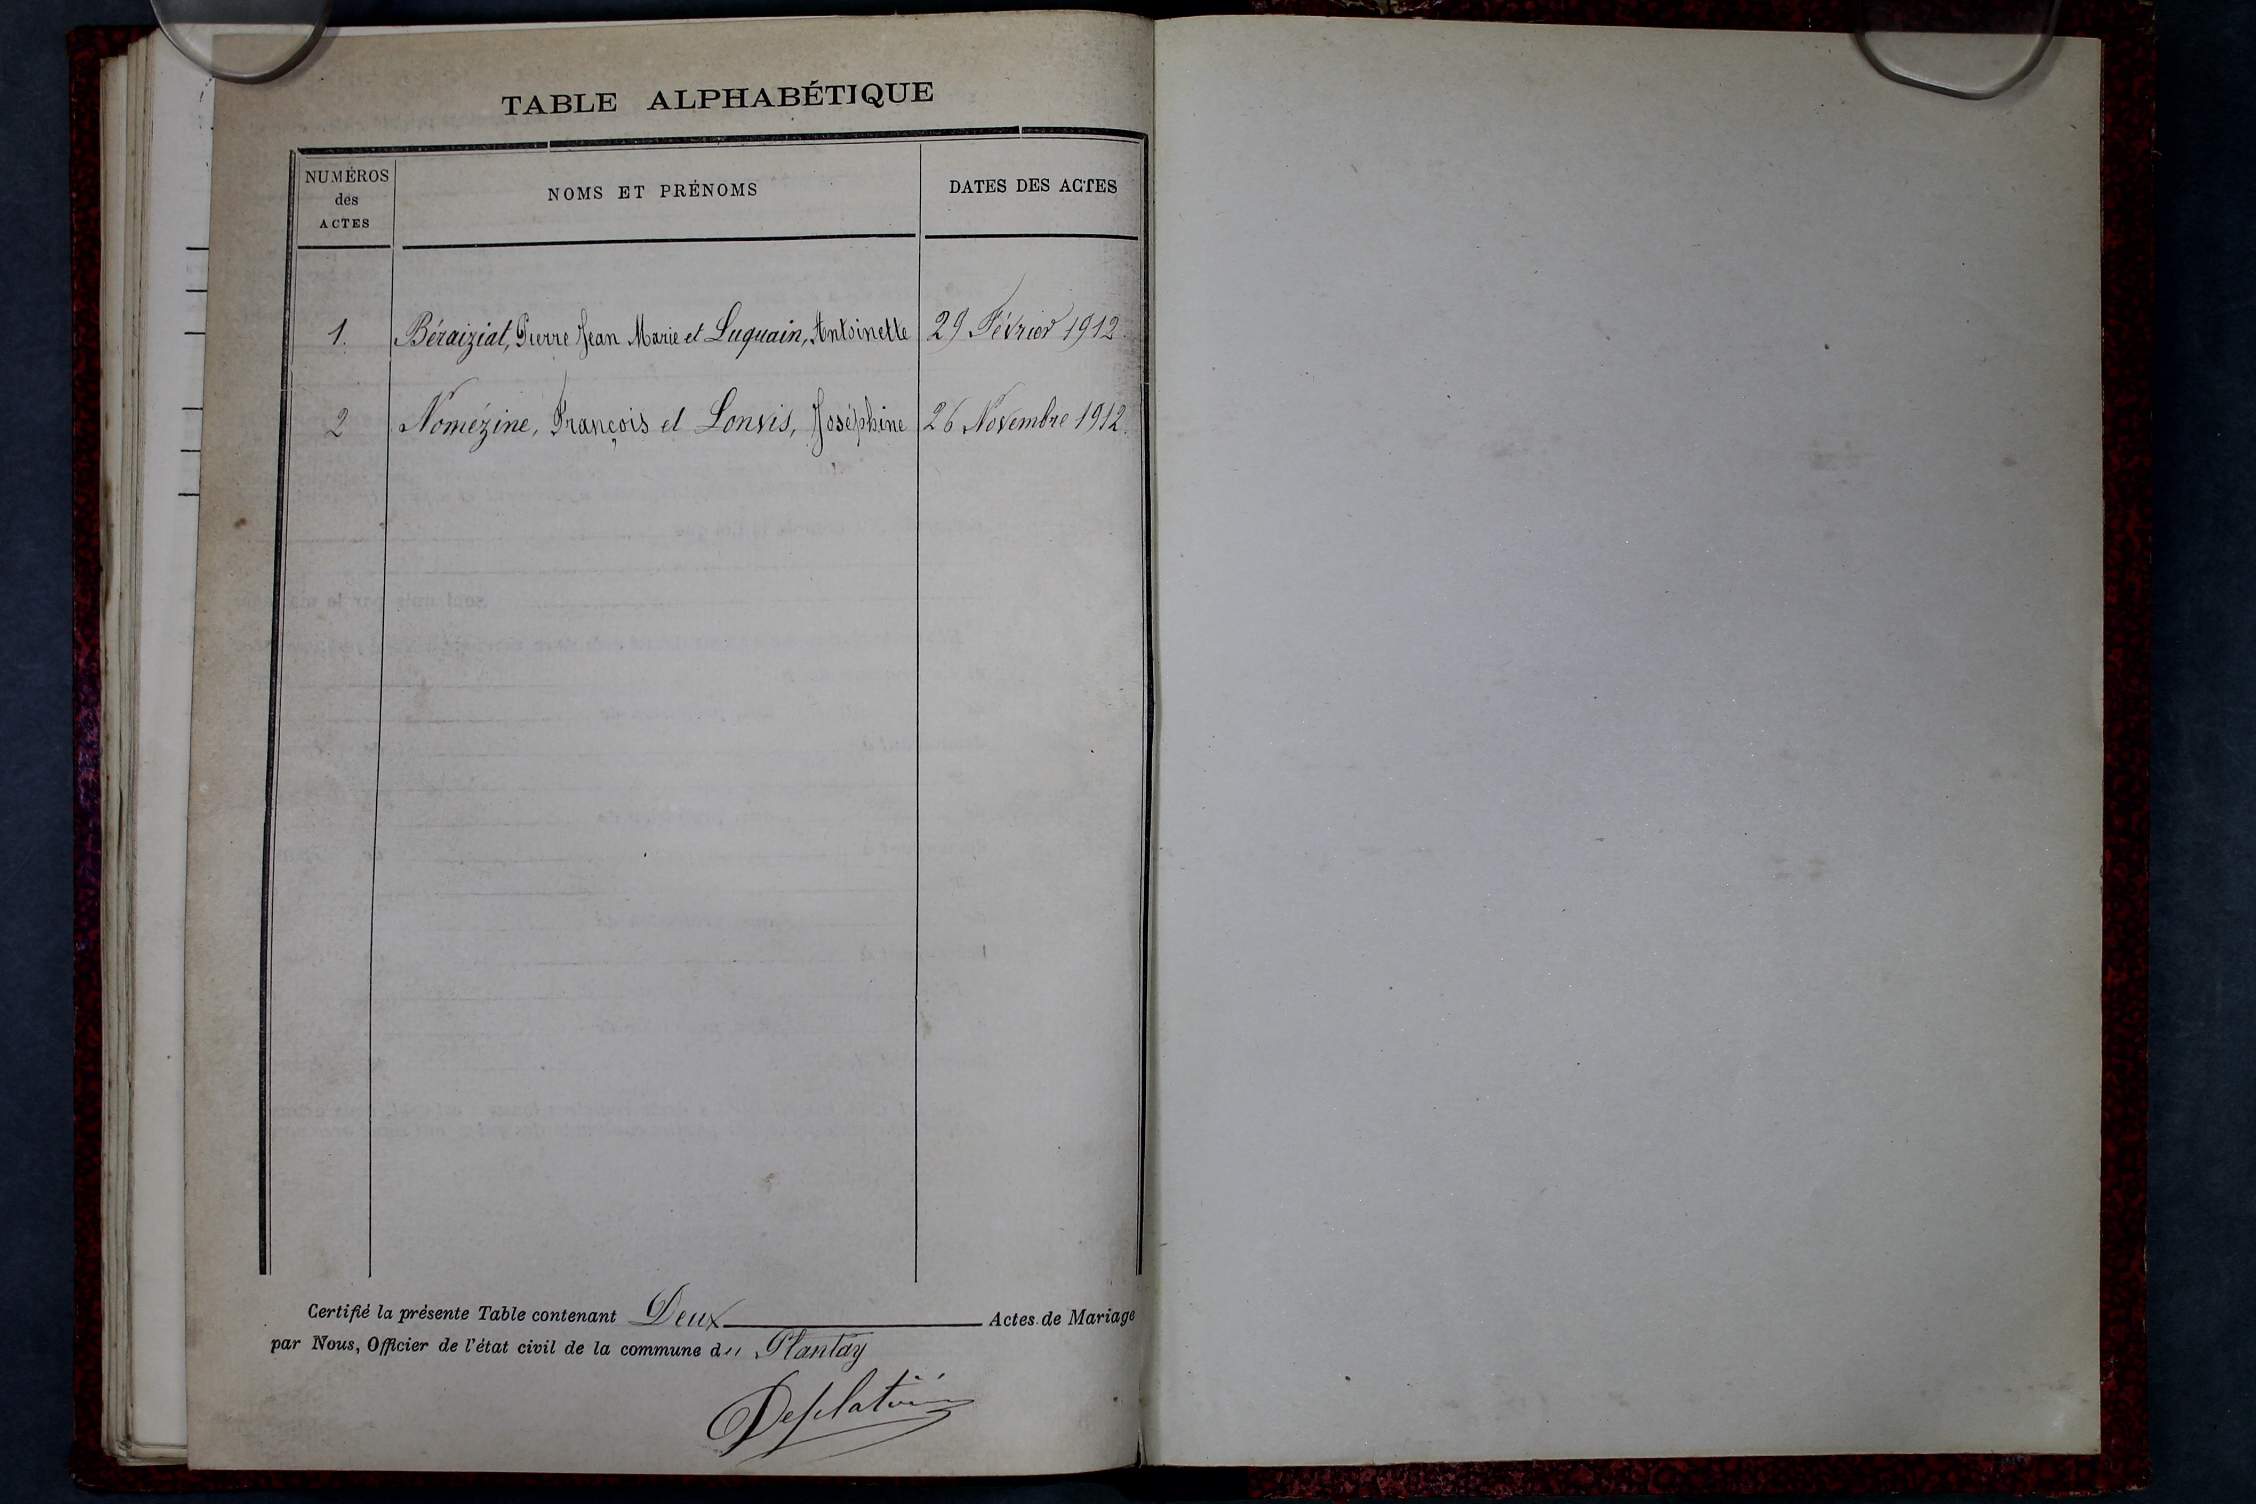 TABLE ALPHABÉTIQUE
NUMÉROS
des
ACTES
NOMS ET PRÉNOMS
DATES DES ACTES
1. Béraiziat, Pierre Jean Marie et Luquain, Antoinette 29 Février 1912.
2 Nomézine, François et Lonvis, Joséphine 26 Novembre 1912.
Certifié la présente Table contenant Deux Actes de Mariage
par Nous, Officier de l'état civil de la commune du Plantay